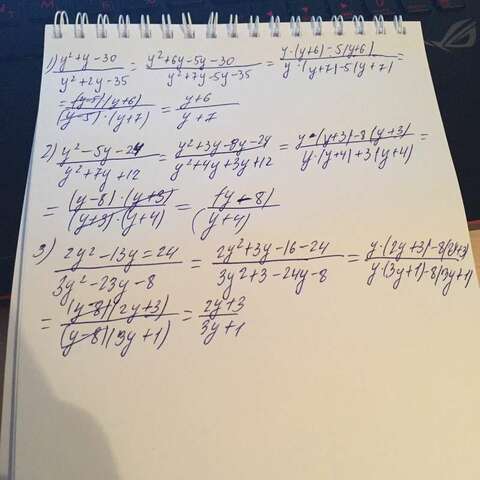 1) (y²+y-30)/(y²+2y-35) = (y²+6y-5y-30)/(y²+7y-5y-35) = (y·(y+6)-5(y+6))/(y·(y+7)-5(y+7)) =
= ((y-5)(y+6))/((y-5)·(y+7)) = (y+6)/(y+7)
2) (y²-5y-24)/(y²+7y+12) = (y²+3y-8y-24)/(y²+4y+3y+12) = (y·(y+3)-8(y+3))/(y·(y+4)+3(y+4)) =
= ((y-8)·(y+3))/((y+3)·(y+4)) = (y-8)/(y+4)
3) (2y²-13y=24)/(3y²-23y-8) = (2y²+3y-16-24)/(3y2+3-24y-8) = (y·(2y+3)-8(2y+3))/(y·(3y+1)-8(3y+1))
= ((y-8)(2y+3))/((y-8)(3y+1)) = (2y+3)/(3y+1)